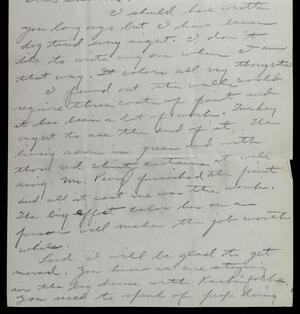 I should have written
you long ago but I have been
dog tired every night. I don't
like to write any one when I am
that way. It colors all my thoughts
I found out the walls would
require three coats of paint and
it has been a lot of work. Tuesday
ought to see the end of it. The
living room is green and with
those red chintz curtains it will
sing. Mr. furnished the paint
and all it cost me was the work.
The big effect color has on a
person will make the job worth
while.
Lord I will be glad to get
moved. You know we are staying
in the big house with
You used to speak of people doing